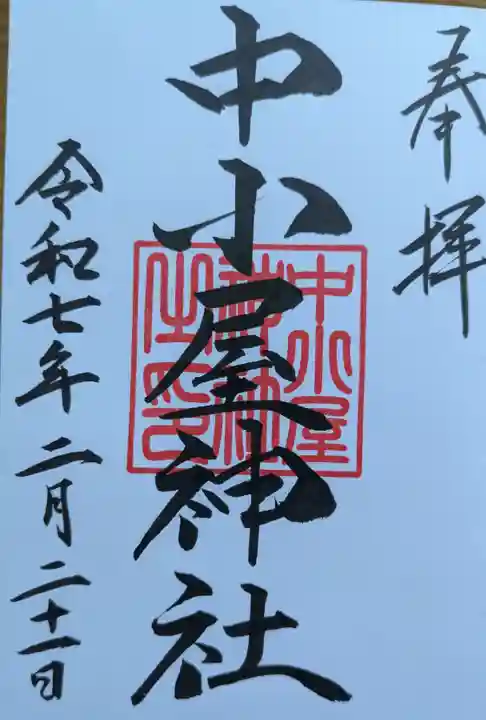 奉拝
中小屋神社
令和七年二月二十一日
中小屋
神社
之印